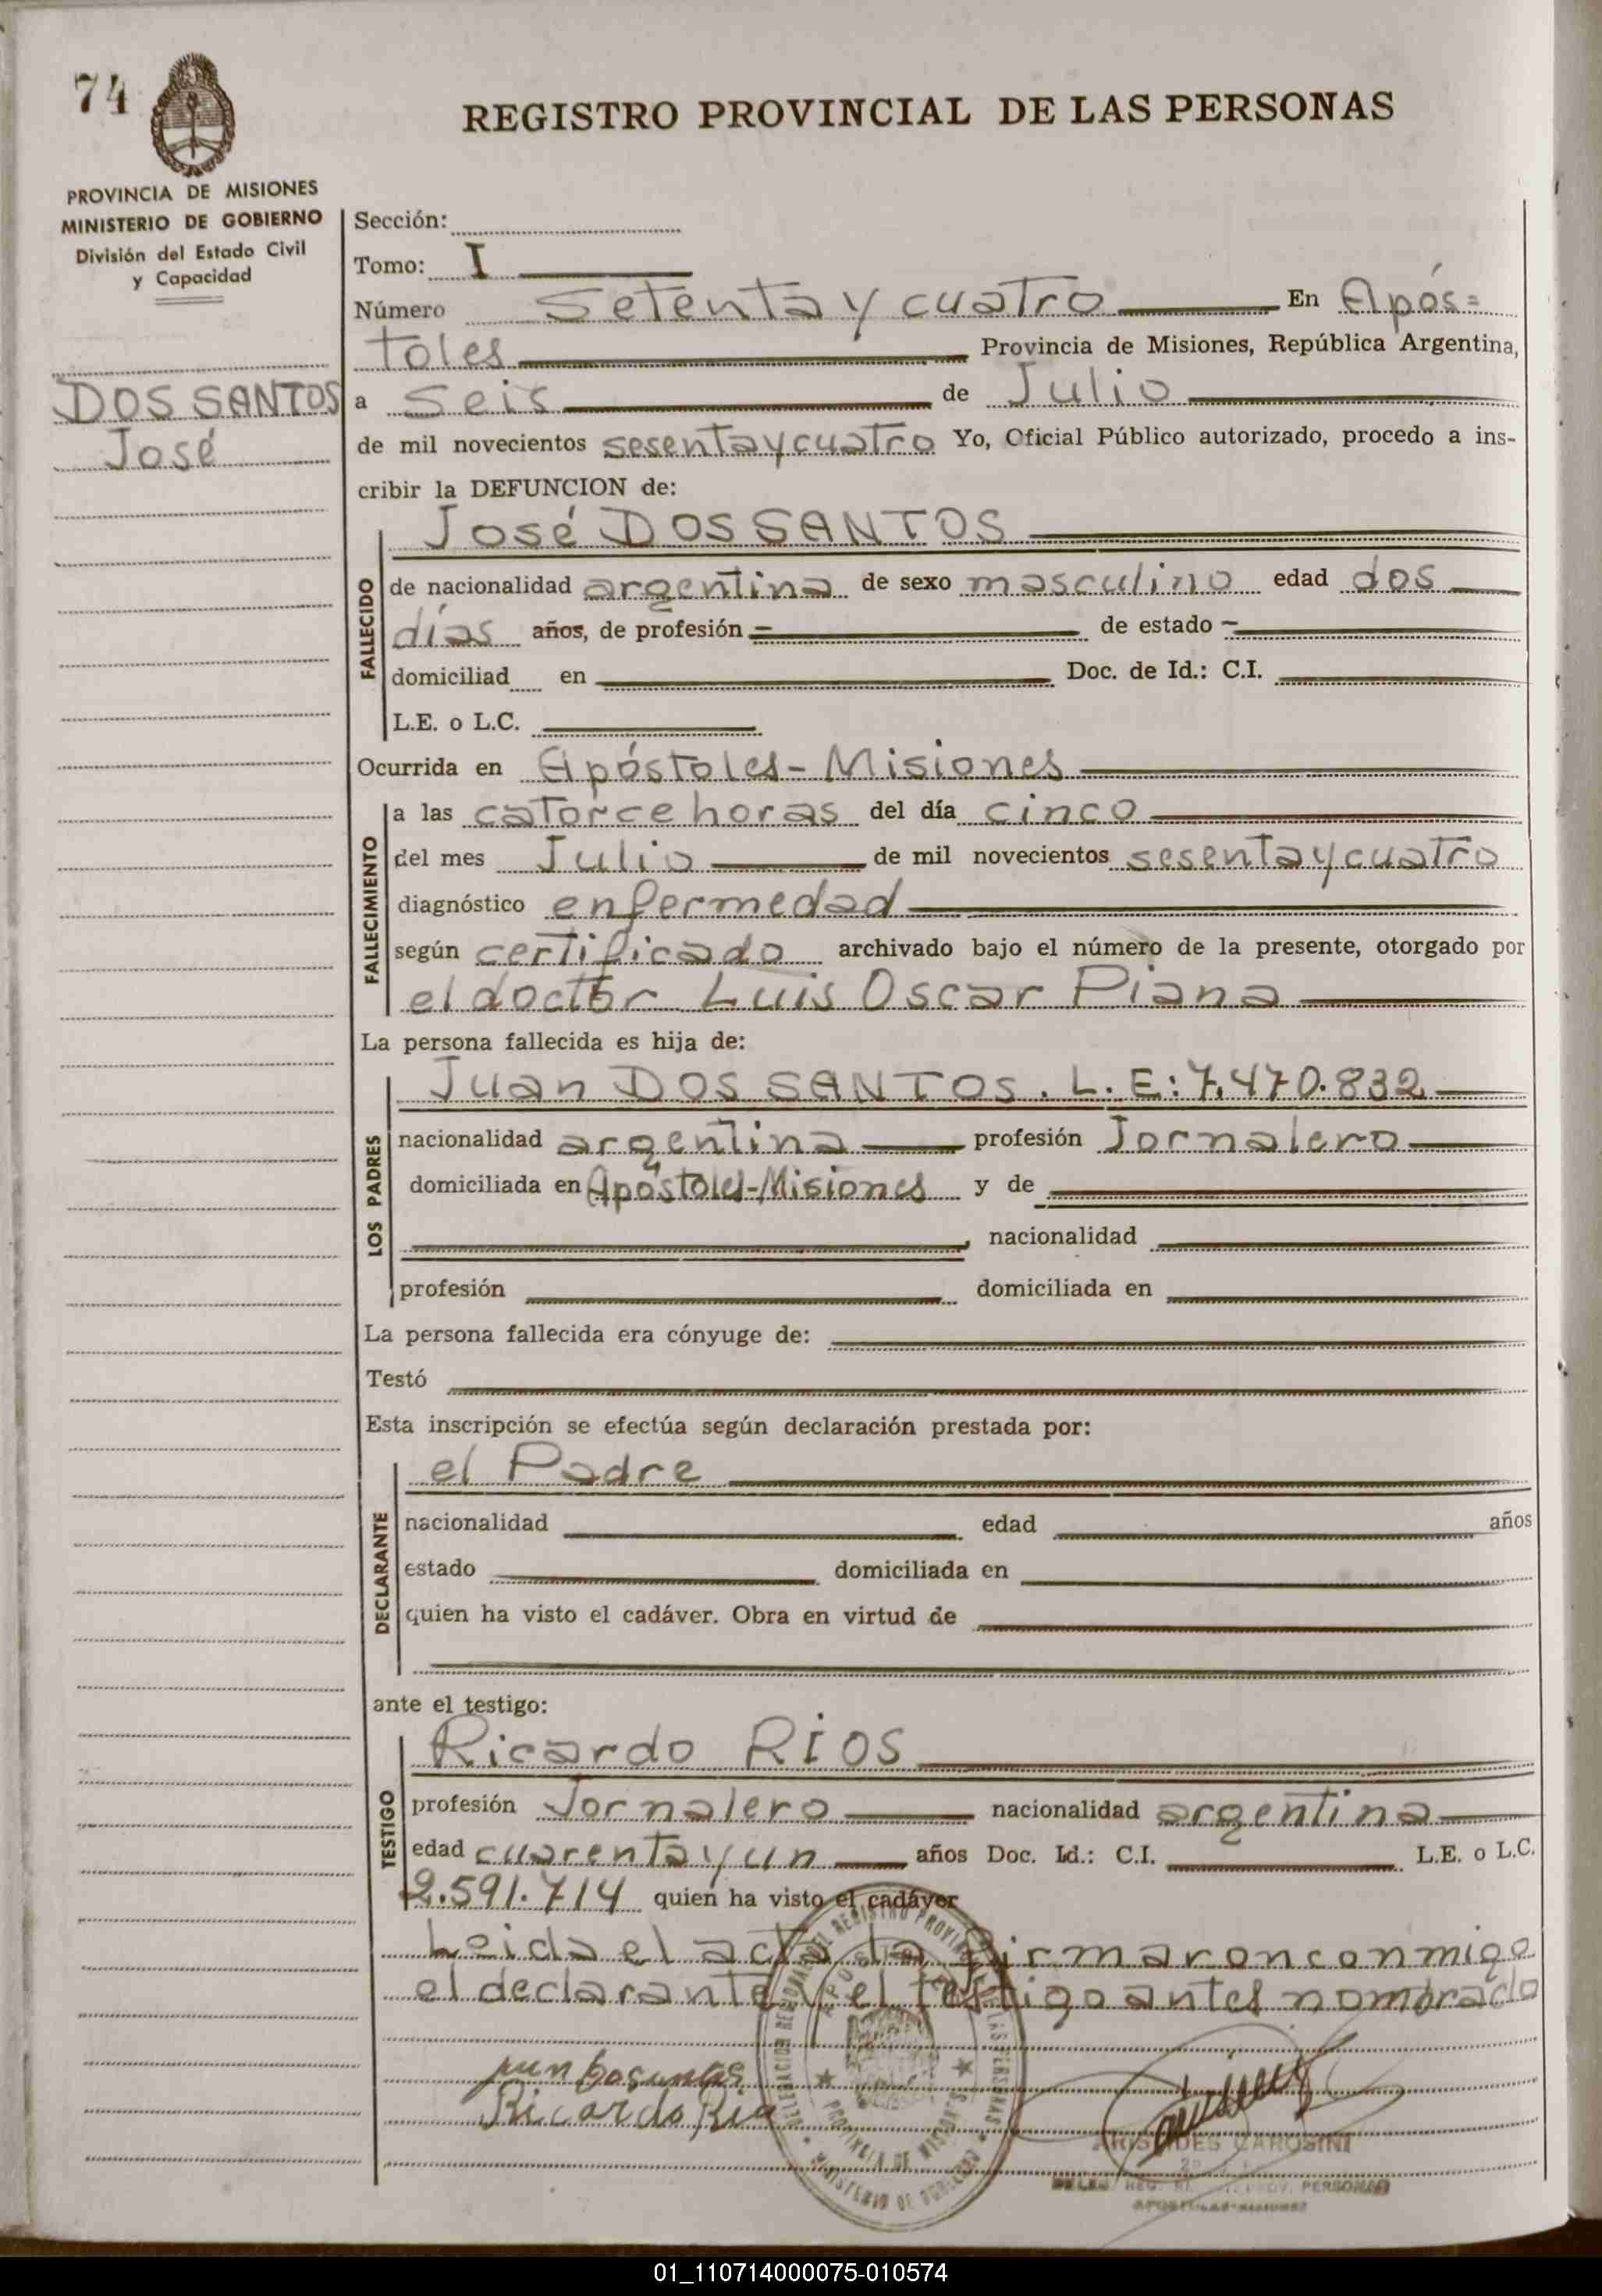 74
REGISTRO PROVINCIAL DE LAS PERSONAS
PROVINCIA DE MISIONES
MINISTERIO DE GOBIERNO
División del Estado Civil
y Capacidad
DOS SANTOS
José
Sección:
Tomo: I
Número Setenta y cuatro En Após=
toles Provincia de Misiones, República Argentina,
a Seis de Julio
de mil novecientos sesenta y cuatro Yo, Oficial Público autorizado, procedo a ins-
cribir la DEFUNCION de:
FALLECIDO
José DOS SANTOS
de nacionalidad argentina de sexo masculino edad dos
días años, de profesión — de estado —
domiciliad en Doc. de Id.: C.I.
L.E. o L.C.
Ocurrida en Apóstoles - Misiones
FALLECIMIENTO
a las catorce horas del día cinco
del mes Julio de mil novecientos sesenta y cuatro
diagnóstico enfermedad
según certificado archivado bajo el número de la presente, otorgado por
el doctor Luis Oscar Piana
La persona fallecida es hija de:
LOS PADRES
Juan DOS SANTOS. L. E: 7.470.832
nacionalidad argentina profesión Jornalero
domiciliada en Apóstoles-Misiones y de
, nacionalidad
profesión domiciliada en
La persona fallecida era cónyuge de:
Testó
Esta inscripción se efectúa según declaración prestada por:
DECLARANTE
el Padre
nacionalidad edad años
estado domiciliada en
quien ha visto el cadáver. Obra en virtud de
ante el testigo:
TESTIGO
Ricardo RIOS
profesión Jornalero nacionalidad argentina
edad cuarenta y un años Doc. Id.: C.I. L.E. o L.C.
2.591.714 quien ha visto el cadáver
Leida el acta la firmaron conmigo
el declarante y el testigo antes nombrado
Ricardo Rio
ARISTIDES CAROSINI
PERSONAS
APOSTOLES-MISIONES
PROVINCIA DE MISIONES
MINISTERIO DE GOBIERNO
01_110714000075-010574